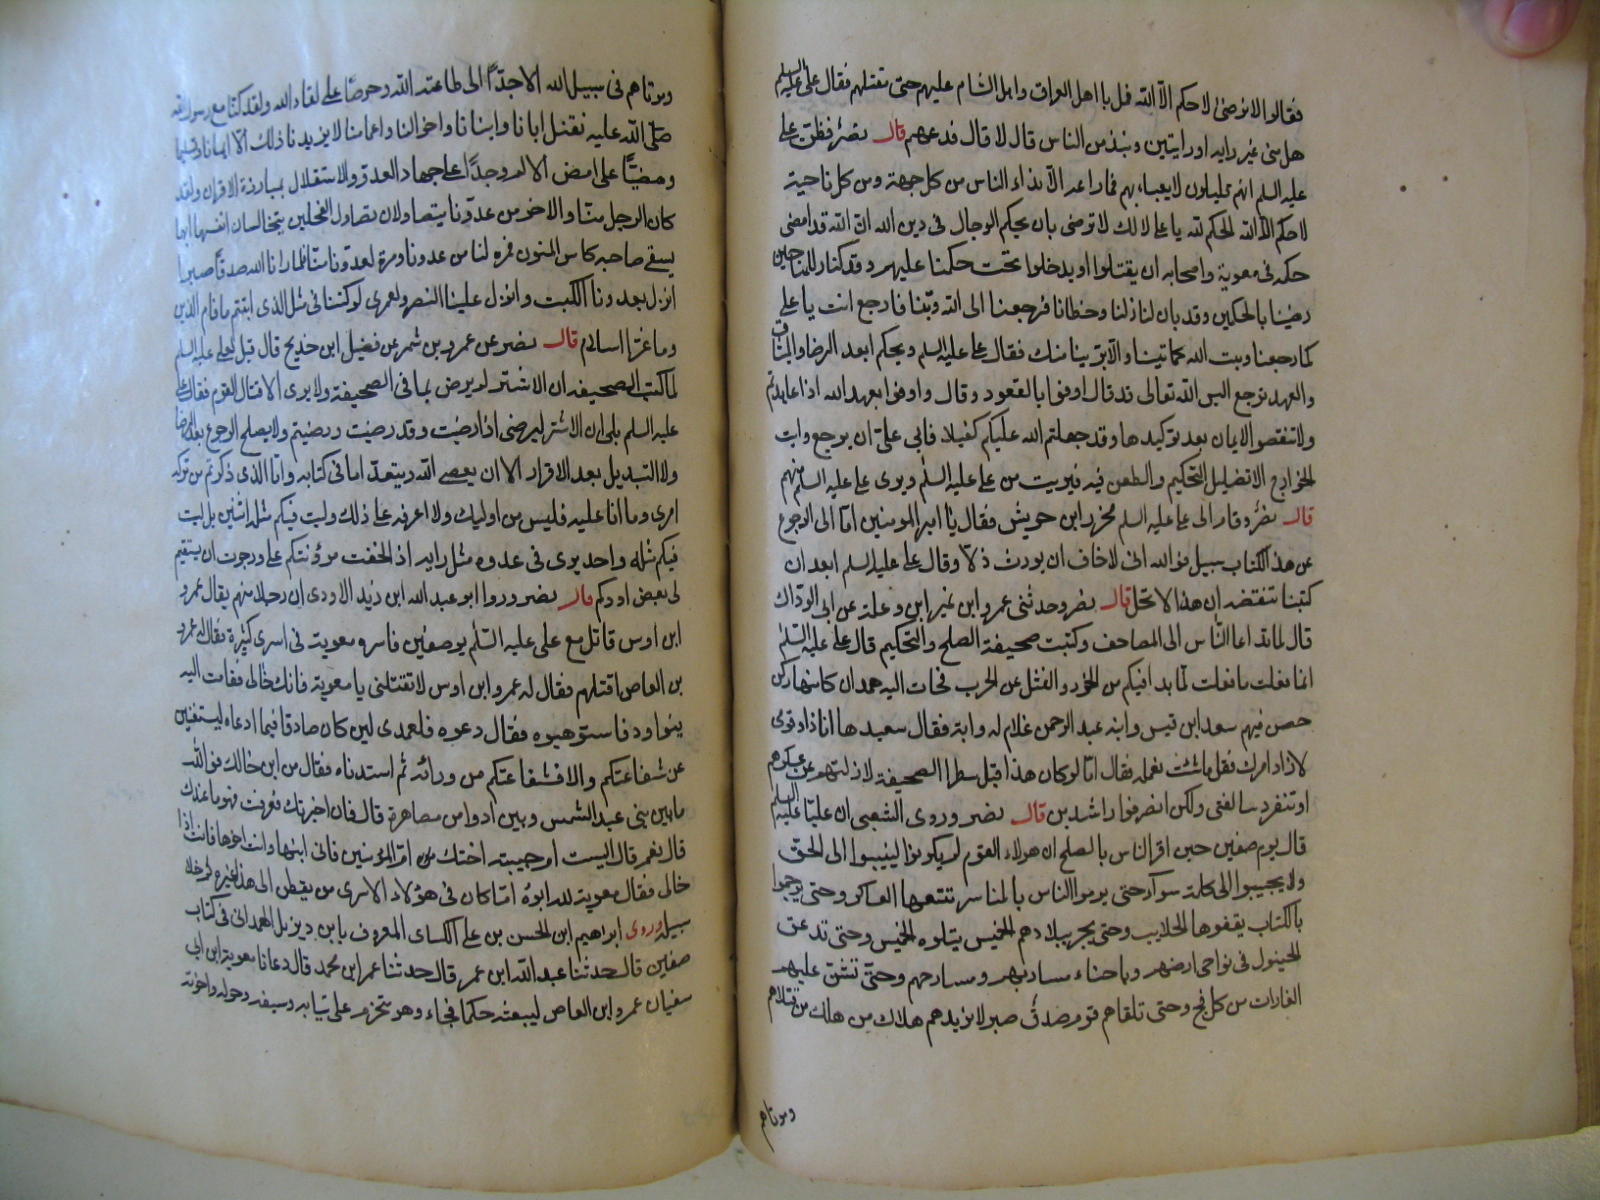 فقالوا لا نرضى لا حكم الا الله قل يا اهل العراق واهل الشام عليهم حتى نقتلهم فقال على عليه السلم
هل هى غير رايه او رايتين ونبذ من الناس قال لا قال فدعهم قال نصر فظن على
عليه السلم انهم قليلون لا يعباء بهم فما راعه الا نداء الناس من كل جهة ومن كل ناحية
لا حكم الا الله الحكم لله يا على لا لك لا نرضى بان يحكم الرجال فى دين الله ان الله قد امضى
حكمه فى معوية واصحابه ان يقتلوا او يدخلوا تحت حكمنا عليهم وقد كنا زللنا حين
رضينا بالحكمين وقد بان لنا زللنا وخطانا فرجعنا الى الله وتبنا فارجع انت يا على
كما رجعنا وتب الى الله كما تبنا والا برينا منك فقال على عليه السلم ويحكم ابعد الرضا والميثاق
والعهد نرجع اليس الله تعالى قد قال اوفوا بالعقود وقال واوفوا بعهد الله اذا عاهدتم
ولا تنقضوا الايمان بعد توكيدها وقد جعلتم الله عليكم كفيلا فابى على ان يرجع وابت
الخوارج الا تضليل التحكيم والطعن فيه فبريت من على عليه السلم وبرى على عليه السلم منهم
قال نصر وقام الى على عليه السلم محرز ابن حريش فقال يا امير المومنين اما الى الرجوع
عن هذا الكتاب سبيل فو الله انى لاخاف ان يورث ذلا وقال على عليه السلم ابعد ان
كتبنا ننقضه ان هذا لا يحل قال نصر وحدثنى عمرو ابن نمير ابن وعلة عن ابى الوداك
قال لما تداعا الناس الى المصاحف وكتبت صحيفة الصلح والتحكيم قال على عليه السلم
انما فعلت ما فعلت لما بدا فيكم من الخور والفشل عن الحرب فجات اليه همدان كانها ركن
حصن فيهم سعد ابن قيس وابنه عبد الرحمن غلام له ذوابة فقال سعيد ها انا ذا وقومى
لا نراد امرك فقل ما شئت نعمله فقال اما لو كان هذا قبل سطر الصحيفة لازلتهم عن عسكرهم
او تنفرد سالفتى ولكن انصرفوا راشدين قال نصر وروى الشعبى ان عليا عليه السلم
قال يوم صفين حين اقر الناس بالصلح ان هولاء القوم لم يكونوا لينيبوا الى الحق
ولا يجيبوا الى كلمة سوآء حتى يرموا الناس بالمناسر تتبعها العساكر وحتى يرجموا
بالكتاب يقفوها الحلايب وحتى يجر ببلادهم الخميس يتلوه الخميس وحتى تدعق
الخيول فى نواحى ارضهم وباحناء مساربهم ومسارحهم وحتى تشن عليهم
الغارات من كل فج وحتى تلقاهم قوم صدق صبر لا يزيدهم هلاك من هلك من قتلاهم
وموتاهم
وموتاهم فى سبيل الله الا جدا الى طاعته الله وحرصا على لقاء الله ولقد كنا مع رسول الله
صلى الله عليه نقتل ابانا وابنانا واخوالنا واعمامنا لا يزيدنا ذلك الا ايمانا وتسليما
ومضيا على امض الالم وجدا على جهاد العدو والاستقلال بمبارزة الاقران ولقد
كان الرجل منا والاخر من عدونا يتصاولان تصاول الفحلين يتخالسان انفسهما ايهما
يسقى صاحبه كاس المنون فمرة لنا من عدونا ومرة لعدونا منا فلما رانا الله صدقا صبرا
انزل بعدونا الكبت وانزل علينا النصر ولعمرى لو كنا فى مثل الذى اتيتم ما قام الدين
وما عز الاسلام قال نصر عن عمرو بن شمر عن فضيل ابن خديج قال قيل لعلى عليه السلم
لما كتب الصحيفة ان الاشتر لم يرض بما فى الصحيفة ولا يرى الا قتال القوم فقال على
عليه السلم بلى ان الاشتر ليرضى اذا رضيت وقد رضيت ورضيتم ولا يصلح الرجوع بعد الرضا
ولا التبديل بعد الاقرار الا ان يعصى الله ويتعدا ما فى كتابه واما الذى ذكرتم من تركه
امرى وما انا عليه فليس من اوليك ولا اعرفه على ذلك وليت فيكم مثله اثنين بل ليت
فيكم مثله واحد يرى فى عدوه مثل رايه اذا لخفت مؤنتكم على ورجوت ان يستقيم
لى بعض اودكم قال نصر وروا ابو عبد الله ابن زيد الاودى ان رجلا منهم يقال عمرو
ابن اوس قاتل مع على عليه السلم يوم صفين فاسره معوية فى اسرى كثيرة فقال له عمرو
بن العاص اقتلهم فقال له عمرو ابن اوس لا تقتلنى يا معوية فانك خالى فقامت اليه
بنوا ود فاستوهبوه فقال دعوه فلعمرى لين كان صادقا فيما ادعاه ليستغنين
عن شفاعتكم والا فشفاعتكم من ورائه ثم استدناه فقال من اين خالك فو الله
ما بين بنى عبد الشمس وبين اود من مصاهرة قال فان اخبرتك فعرفت فهو ما عندك
قال نعم قال اليست ام حبيبة اختك ام المؤمنين فانى ابنها وانت اخوها فانت اذا
خالى فقال معوية لله ابوه اما كان فى هؤلاء الاسرى من يفطن الى هذا غيره ثم خلا
سبيله وروى ابراهيم ابن الحسن بن على الكساى المعروف بابن ديزيل الهمدانى فى كتاب
صفين قال حدثنا عبد الله ابن عمر قال حدثنا عمر ابن محمد قال دعانا معوية ابن ابى
سفيان عمرو ابن العاص ليبعثه حكما فجاء وهو متحزم على ثيابه وسيفه وحوله واخوته